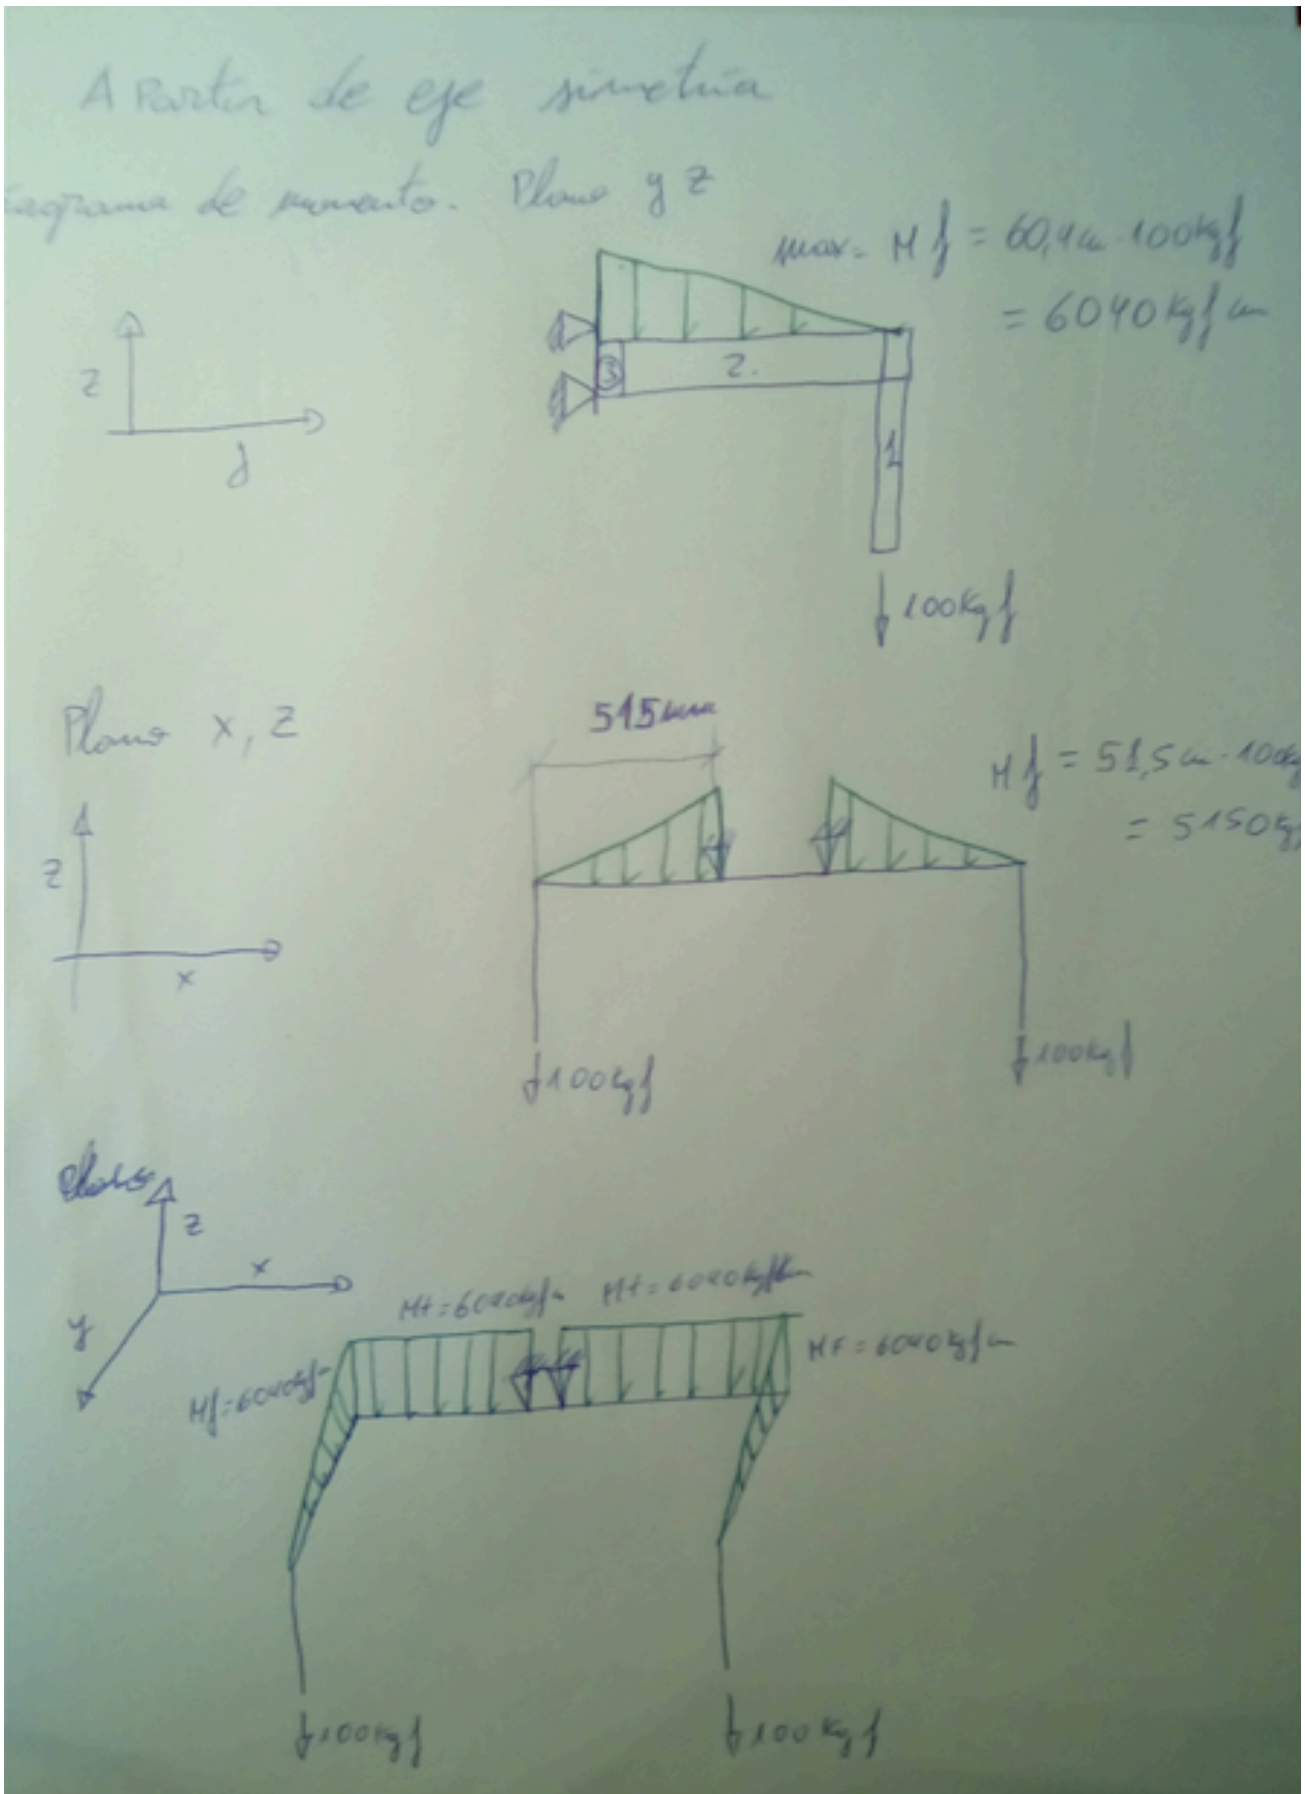 A Partir de eje simetria
diagrama de momento. Plano y z
max. Mf = 60,4 cm · 100 Kgf
= 6040 Kgf cm
z
y
3
2.
1
100 Kgf
Plano x, z
515 mm
Mf = 51,5 cm · 100 Kg
= 5150 Kg
z
x
100 Kgf
100 Kgf
Plano
z
x
y
Mt = 6040 Kgf cm
Mt = 6040 Kgf cm
Mf = 6040 Kgf
MF = 6040 Kgf cm
100 Kgf
100 Kgf